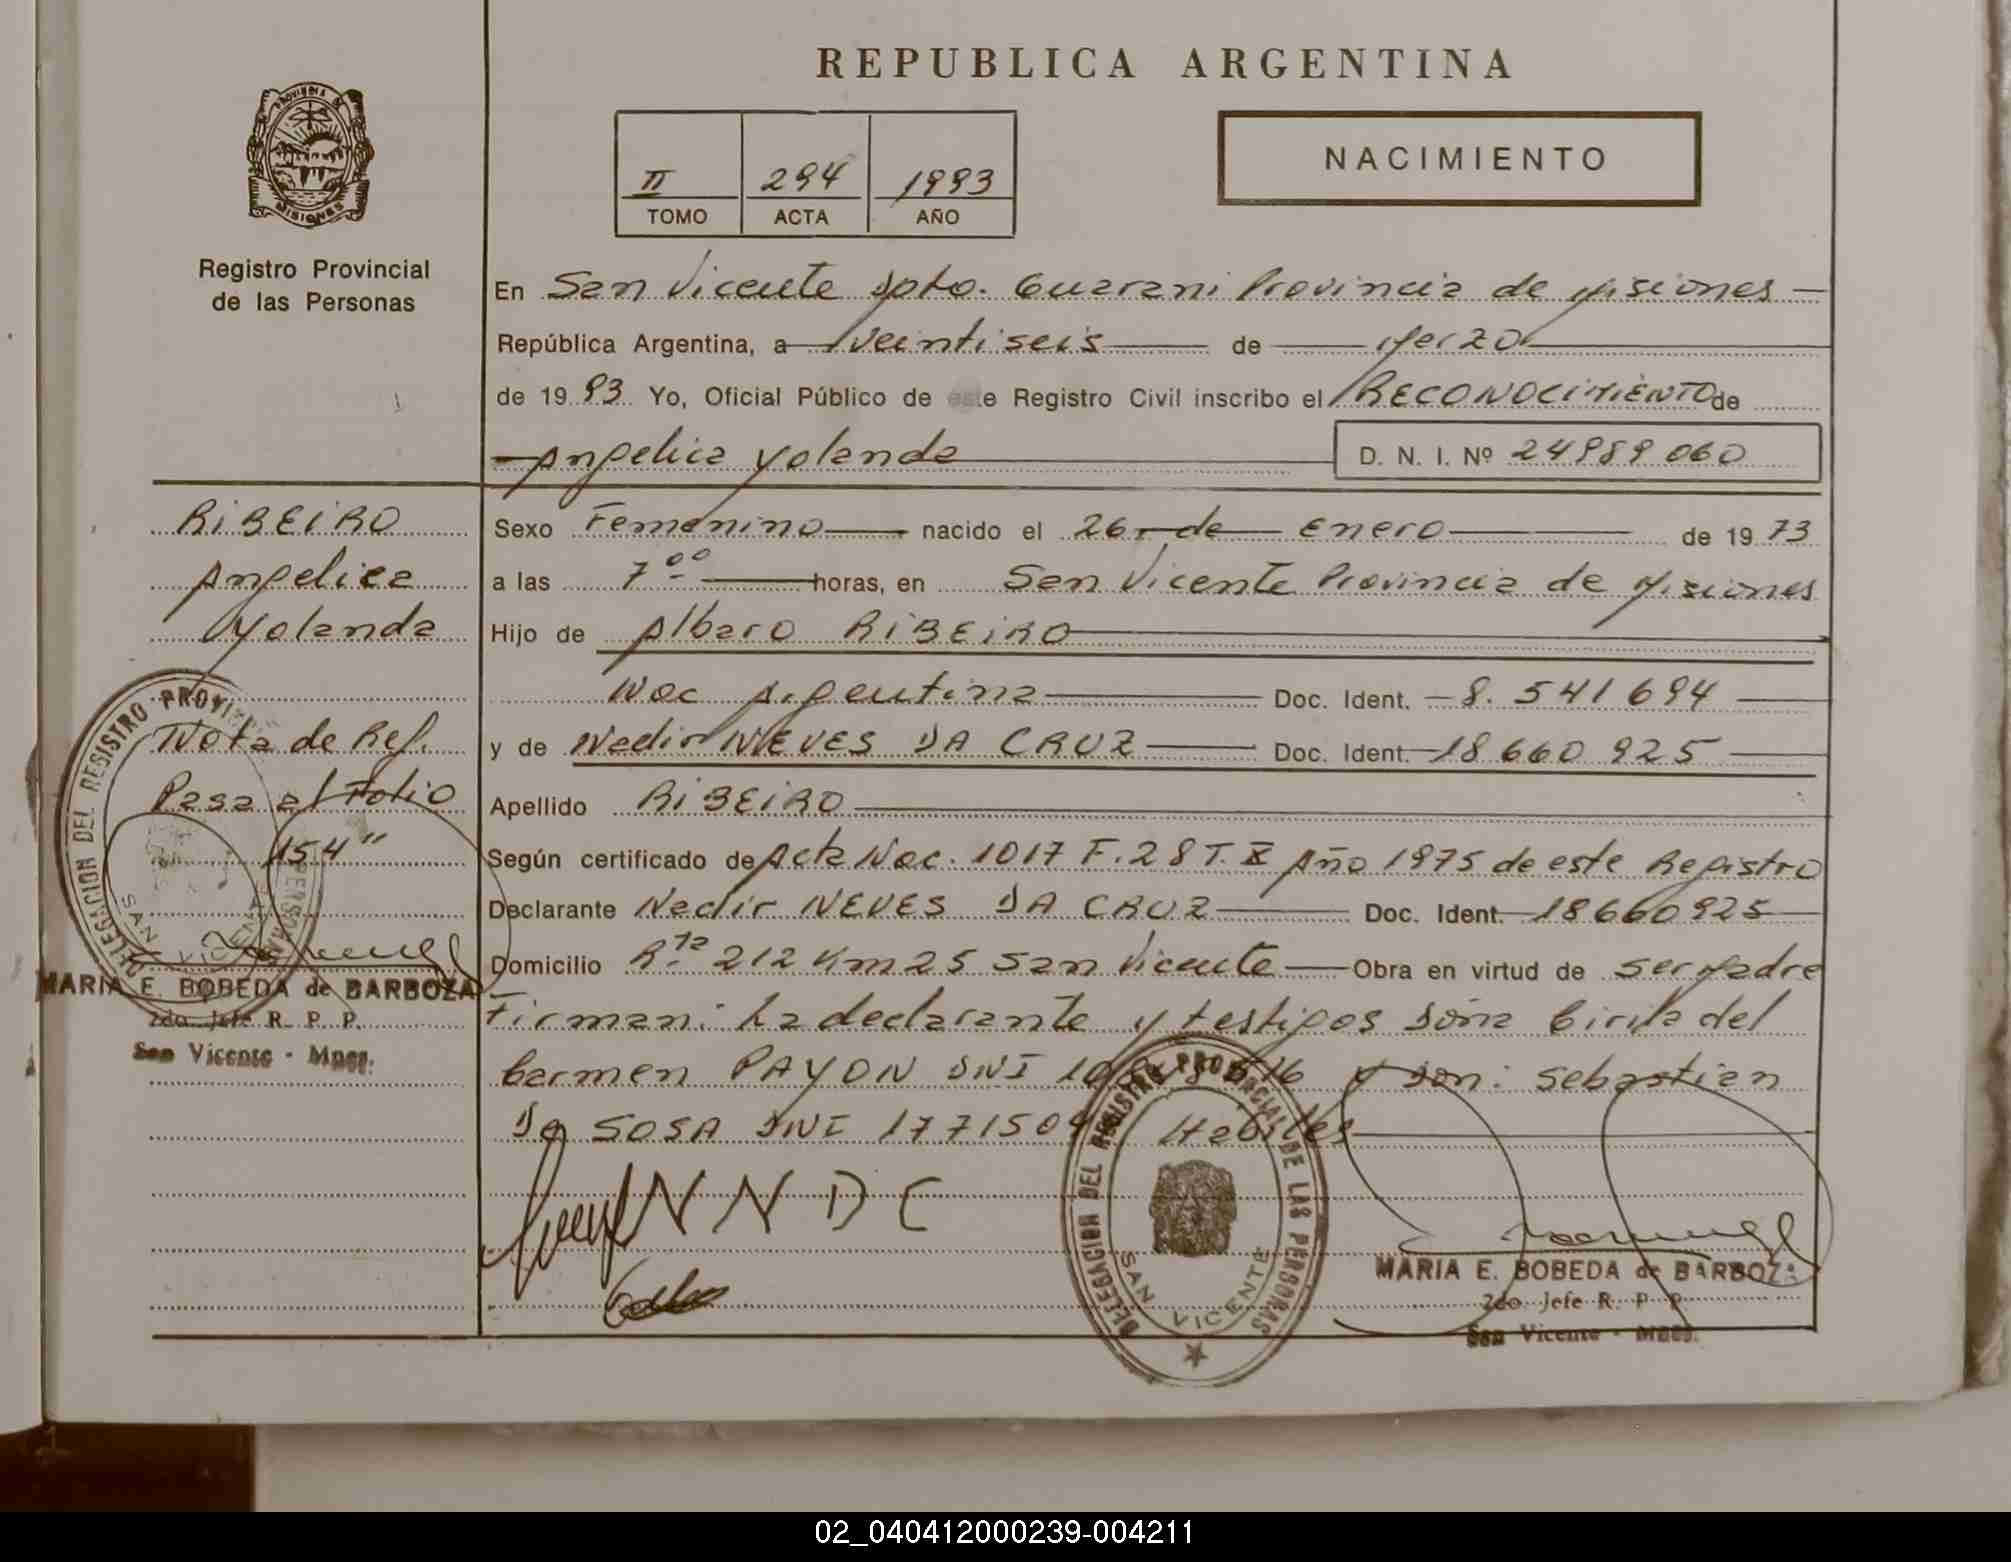 REPUBLICA ARGENTINA
PROVINCIA DE
MISIONES
Registro Provincial
de las Personas
II 294 1993
TOMO ACTA AÑO
NACIMIENTO
En San Vicente Dpto. Guarani Provincia de Misiones
República Argentina, a Veintiseis de Marzo
de 1993 Yo, Oficial Público de este Registro Civil inscribo el RECONOCIMIENTO de
Angelica Yolanda D. N. I. Nº 24989060
RIBEIRO
Angelica
Yolanda
Nota de Ref.
Pasa al Folio
154"
DELEGACION DEL REGISTRO PROVI
PERSONA
SAN VICENTE
MARIA E. BOBEDA de BARBOZA
2do. Jefe R. P. P.
San Vicente - Mnes.
Sexo Femenino nacido el 26 de Enero de 1973
a las 7 00 horas, en San Vicente Provincia de Misiones
Hijo de Albaro RIBEIRO
Nac Argentina Doc. Ident. 8.541694
y de Nedir NEVES DA CRUZ Doc. Ident. 18660925
Apellido RIBEIRO
Según certificado de Acta Nac. 1017 F.28 T. Año 1975 de este Registro
Declarante Nedir NEVES DA CRUZ Doc. Ident. 18660925
Domicilio Rta 212 Km 25 San Vicente Obra en virtud de ser Madre
Firman: La declarante y testigos Doña Cirila del
Carmen PAYON DNI y Don: Sebastian
Da SOSA DNI Habiles
N N D C
DELEGACION DEL REGISTRO PROVINCIAL DE LAS PERSONAS
SAN VICENTE
MARIA E. BOBEDA de BARBOZA
2do. Jefe R. P. P.
San Vicente - Mnes.
02_040412000239-004211